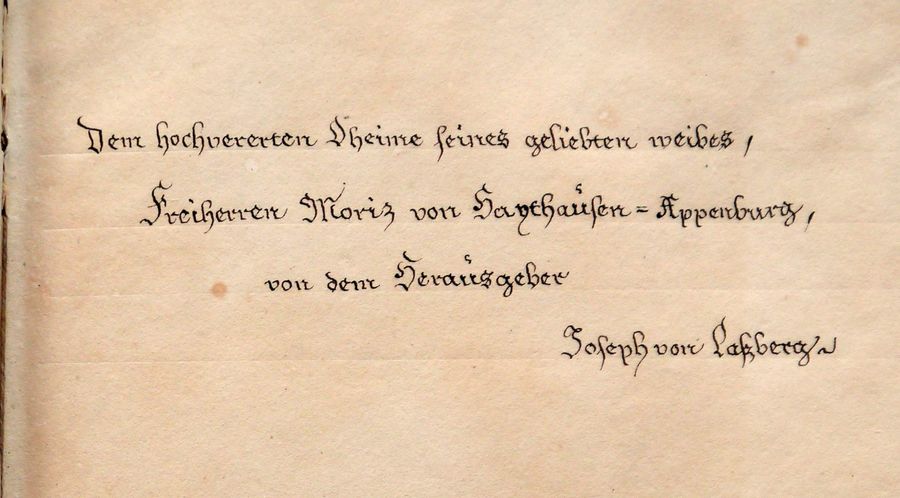 Dem hochvererten Oheime seines geliebten weibes,
Freiherren Moriz von Haxthausen=Appenburg,
von dem Herausgeber
Joseph von Laßberg